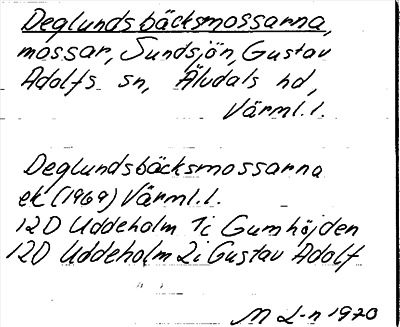 Deglundsbäcksmossarna,
mossar, Sundsjön, Gustav
Adolfs sn, Älvdals hd,
Värml.l.
Deglundsbäcksmossarna
ek (1969) Värml.l.
12D Uddeholm 1i Gumhöjden
12D Uddeholm 2i Gustav Adolf
M L-n 1970